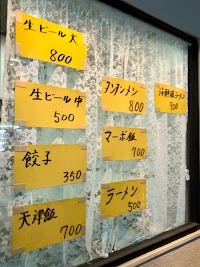 生ビール大
800
生ビール中
500
餃子
350
天津飯
700
タンタンメン
800
マーボ飯
700
ラーメン
500
900